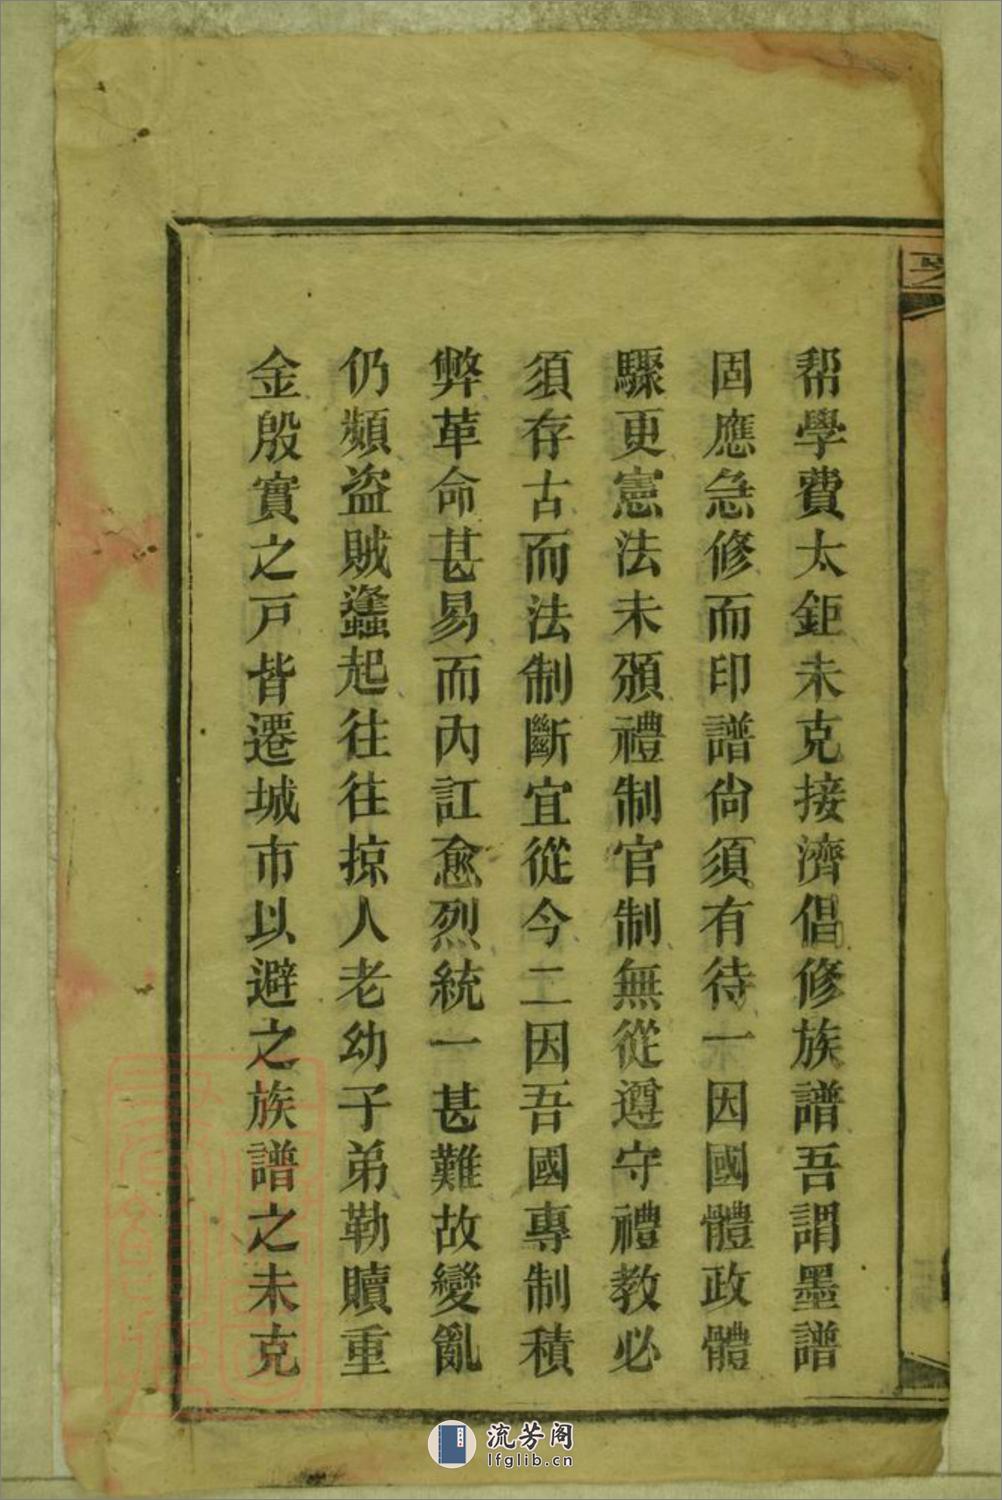 帮學費太鉅未克接濟倡修族譜吾謂墨譜
固應急修而印譜尙須有待一因國體政體
驟更憲法未頒禮制官制無從遵守禮教必
須存古而法制斷宜從今二因吾國專制積
弊革命甚易而內訌愈烈統一甚難故變亂
仍頻盜賊蠭起往往掠人老幼子弟勒贖重
金殷實之戸皆遷城市以避之族譜之未克
流芳阁
lfglib.cn